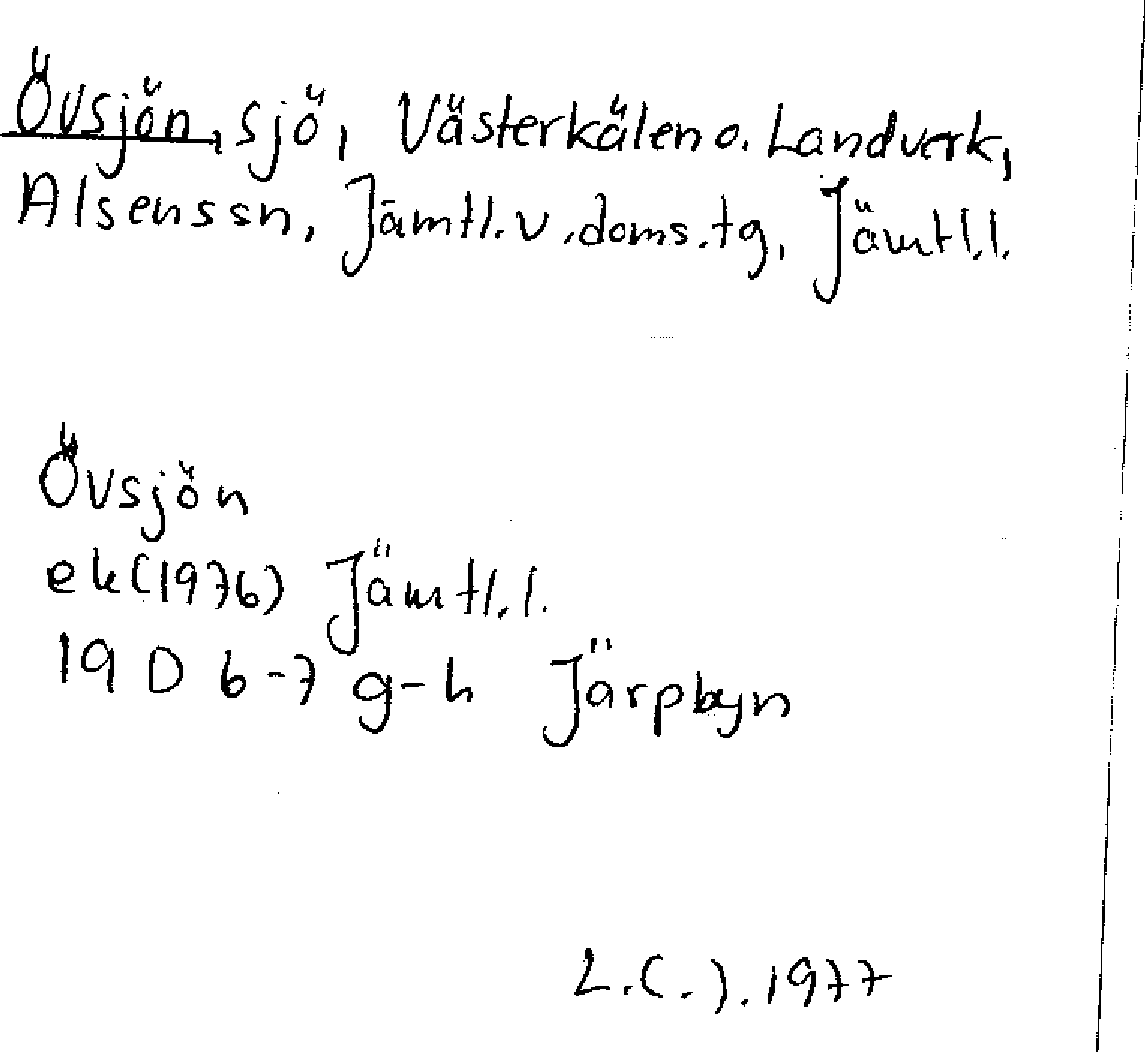 Övsjön, sjö, Västerkälen o. Landverk,
Alsens sn, Jämtl. v. doms. tg, Jämtl.l.
Övsjön
ek (1976) Jämtl.l.
19 D 6-7 g-h Järpbyn
L.(-). 1977